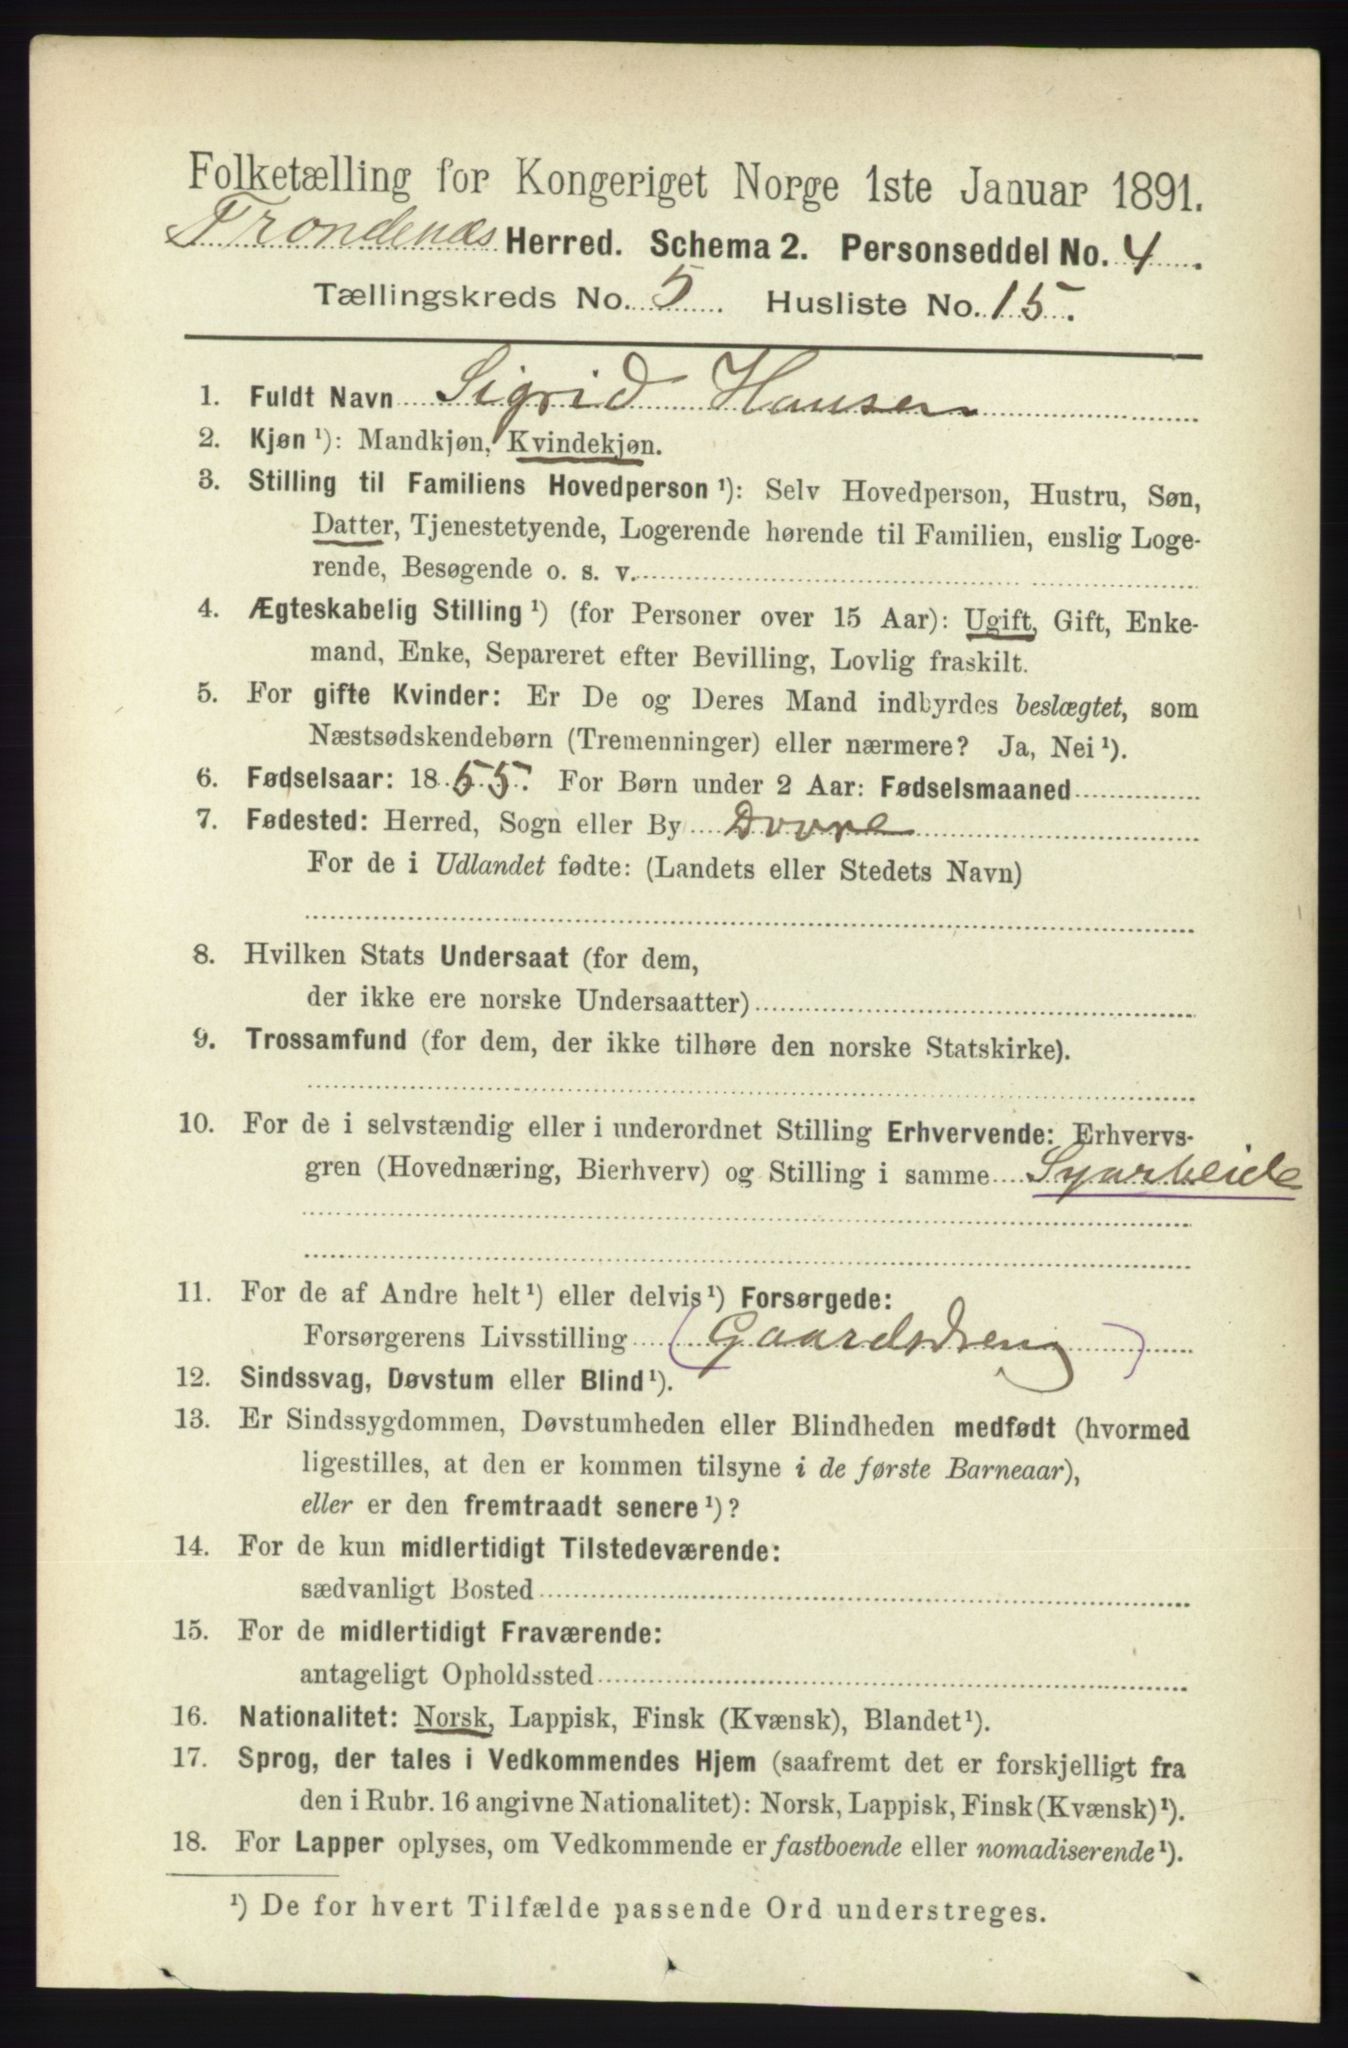 Folketælling for Kongeriget Norge 1ste Januar 1891.
Trondenæs Herred. Schema 2. Personseddel No. 4
Tællingskreds No. 5 Husliste No. 15.
1. Fuldt Navn Sigrid Hansen
2. Kjøn ¹): Mandkjøn, Kvindekjøn.
3. Stilling til Familiens Hovedperson ¹): Selv Hovedperson, Hustru, Søn,
Datter, Tjenestetyende, Logerende hørende til Familien, enslig Loge-
rende, Besøgende o. s. v.
4. Ægteskabelig Stilling ¹) (for Personer over 15 Aar): Ugift, Gift, Enke-
mand, Enke, Separeret efter Bevilling, Lovlig fraskilt.
5. For gifte Kvinder: Er De og Deres Mand indbyrdes beslægtet, som
Næstsødskendebørn (Tremenninger) eller nærmere? Ja, Nei ¹).
6. Fødselsaar: 1855. For Børn under 2 Aar: Fødselsmaaned
7. Fødested: Herred, Sogn eller By Dovre
For de i Udlandet fødte: (Landets eller Stedets Navn)
8. Hvilken Stats Undersaat (for dem,
der ikke ere norske Undersaatter)
9. Trossamfund (for dem, der ikke tilhøre den norske Statskirke).
10. For de i selvstændig eller i underordnet Stilling Erhvervende: Erhvervs-
gren (Hovednæring, Bierhverv) og Stilling i samme Syarbeide
11. For de af Andre helt ¹) eller delvis ¹) Forsørgede:
Forsørgerens Livsstilling (Gaardsdreng)
12. Sindssvag, Døvstum eller Blind ¹).
13. Er Sindssygdommen, Døvstumheden eller Blindheden medfødt (hvormed
ligestilles, at den er kommen tilsyne i de første Barneaar),
eller er den fremtraadt senere ¹)?
14. For de kun midlertidigt Tilstedeværende:
sædvanligt Bosted
15. For de midlertidigt Fraværende:
antageligt Opholdssted
16. Nationalitet: Norsk, Lappisk, Finsk (Kvænsk), Blandet ¹).
17. Sprog, der tales i Vedkommendes Hjem (saafremt det er forskjelligt fra
den i Rubr. 16 angivne Nationalitet): Norsk, Lappisk, Finsk (Kvænsk) ¹).
18. For Lapper oplyses, om Vedkommende er fastboende eller nomadiserende ¹).
¹) De for hvert Tilfælde passende Ord understreges.